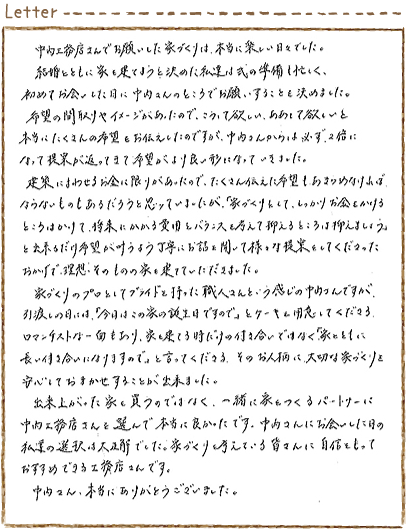 Letter
中内工務店さんでお願いした家づくりは、本当に楽しい日々でした。
結婚とともに家を建てようと決めた私達は式の準備も忙しく、
初めてお会いした日に中内さんのところでお願いすることも決めました。
希望の間取りやイメージがあったので、こうして欲しい、ああして欲しいと
本当にたくさんの希望をお伝えしたのですが、中内さんからは必ず、2倍に
なって提案が返ってきて希望がより良い形になっていきました。
建築にまわせるお金に限りがあったので、たくさん伝えた希望もあきらめなければ
ならないものもあるだろうと思っていましたが、「家づくりとして、しっかりお金をかける
ところはかけて、将来にかかる費用とバランスを考えて抑えるところは抑えましょう。」
と出来るだけ希望が叶うよう丁寧にお話を聞いて様々な提案をしてくださった
おかげで、理想そのものの家を建てていただきました。
家づくりのプロとしてプライドを持った職人さんという感じの中内さんですが、
引渡しの日には、「今日はこの家の誕生日ですので」とケーキも用意してくださる
ロマンチストな一面もあり、家を建てる時だけの付き合いではなく「家とともに
長い付き合いになりますので」と言ってくださる、そのお人柄に、大切な家づくりを
安心しておまかせすることが出来ました。
出来上がった家を買うのではなく、一緒に家をつくるパートナーに
中内工務店さんを選んで本当に良かったです。中内さんにお会いした日の
私達の選択は大正解でした。家づくりを考えている皆さんに自信をもって
おすすめできる工務店さんです。
中内さん、本当にありがとうございました。